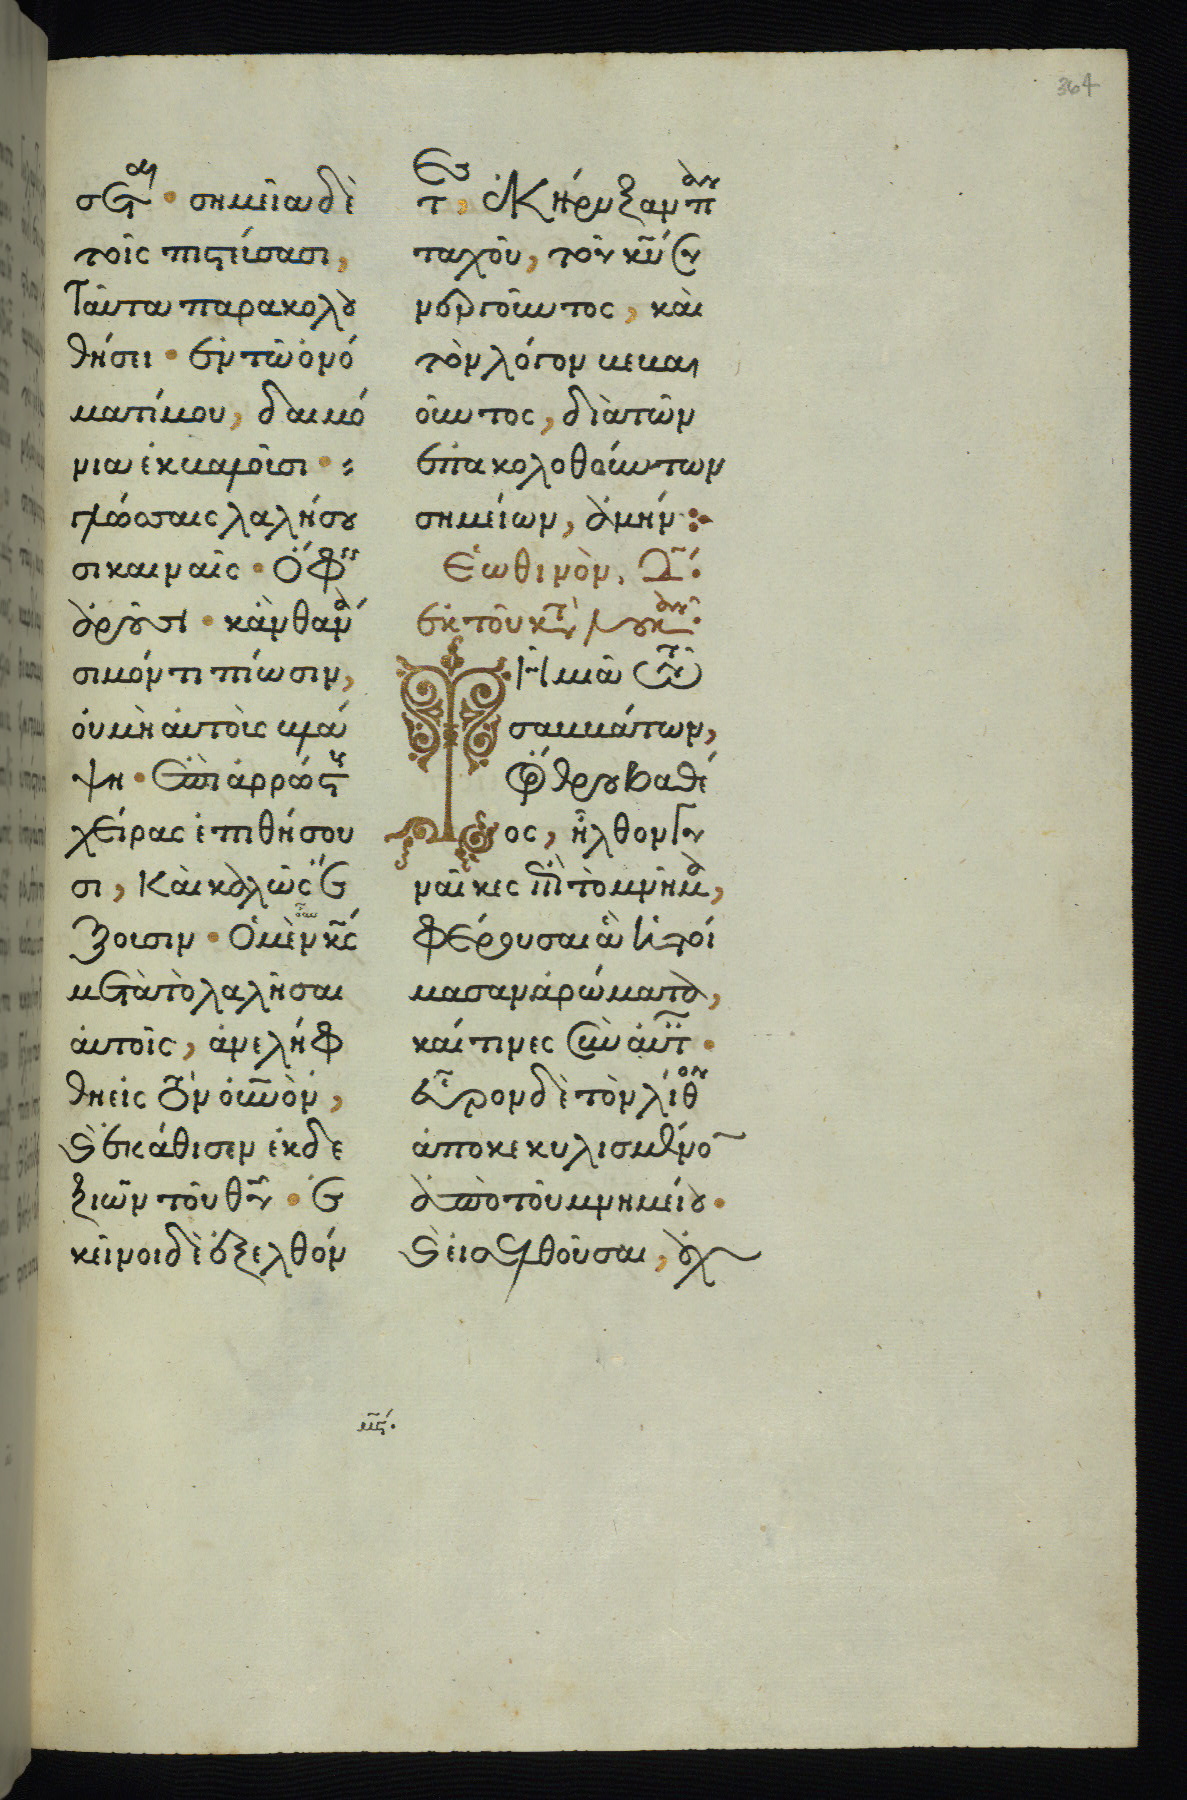 364
σεται · σημεῖα δὲ
τοῖς πιστεύσασι,
Ταῦτα παρακολου
θήσει · ἐν τῷ ὀνό
ματί μου, δαιμό
νια ἐκβαλοῦσι ·
γλώσσαις λαλήσου
σι καιναῖς · Ὄφεις
ἀροῦσι · κἂν θανά
σιμόν τι πίωσιν,
οὐ μὴ αὐτοὺς βλά
ψῃ · Ἐπὶ ἀρρώστους
χεῖρας ἐπιθήσου
σι, Καὶ καλῶς ἕ
ξουσιν · Ὁ μὲν κς
μετὰ τὸ λαλῆσαι
αὐτοῖς, ἀνελήφ
θη εἰς τὸν οὐνὸν,
καὶ ἐκάθισεν ἐκ δε
ξιῶν τοῦ θυ · ἐ
κεῖνοι δὲ ἐξελθόν
τες, ἐκήρυξαν παν
ταχοῦ, τοῦ κυ συ
νεργοῦντος, καὶ
τὸν λόγον βεβαι
οῦντος, διὰ τῶν
ἐπακολουθούντων
σημείων, ἀμήν :
Ἑωθινὸν, Δ΄.
ἐκ τοῦ κατὰ λουκᾶν.
Τῇ μιᾷ τῶν
σαββάτων,
ὄρθρου βαθέ
ος, ἦλθον γυ
ναῖκες ἐπὶ τὸ μνῆμα,
φέρουσαι ἃ ἡτοί
μασαν ἀρώματα,
καί τινες σὺν αὐταῖς ·
εὗρον δὲ τὸν λίθον
ἀποκεκυλισμένον
ἀπὸ τοῦ μνημείου ·
καὶ εἰσελθοῦσαι, οὐχ
μς΄.